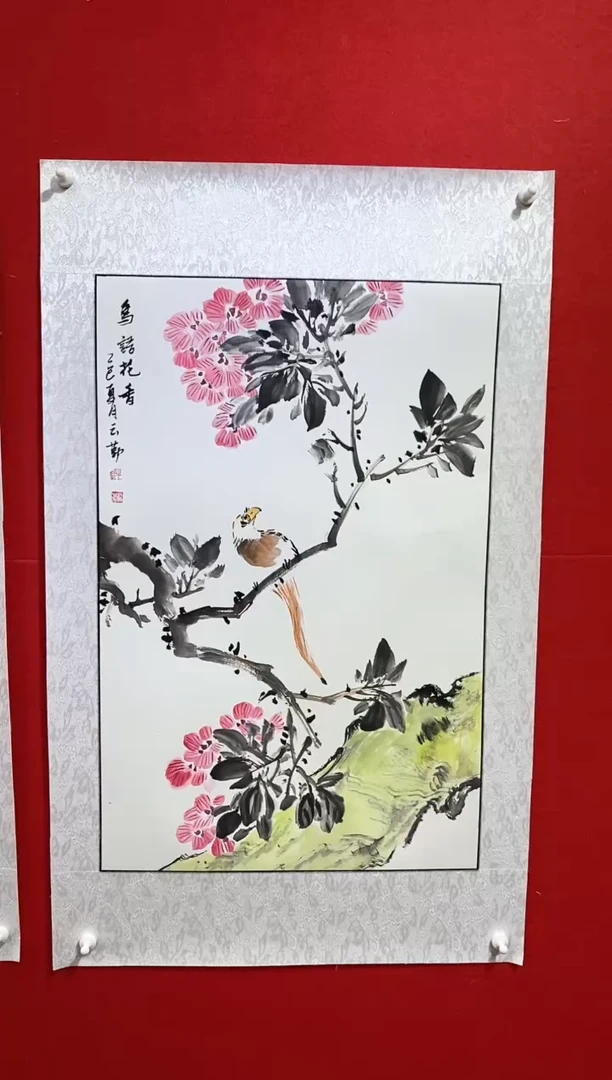 鸟語花香
乙巳夏月云勤